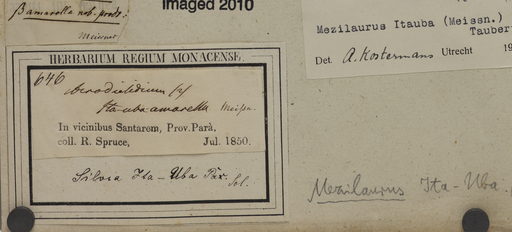 Imaged 2010
β amarella nob. prodr:
Meisner
Mezilaurus Itauba (Meissn.)
Taubert
Det. A. Kostermans Utrecht 19
HERBARIUM REGIUM MONACENSE.
646
Acrodiclidium
Ita-uba amarella Meissn.
In vicinibus Santarem, Prov. Parà,
coll. R. Spruce, Jul. 1850.
Silvia Ita-Uba Pax.
Mezilaurus Ita-Uba